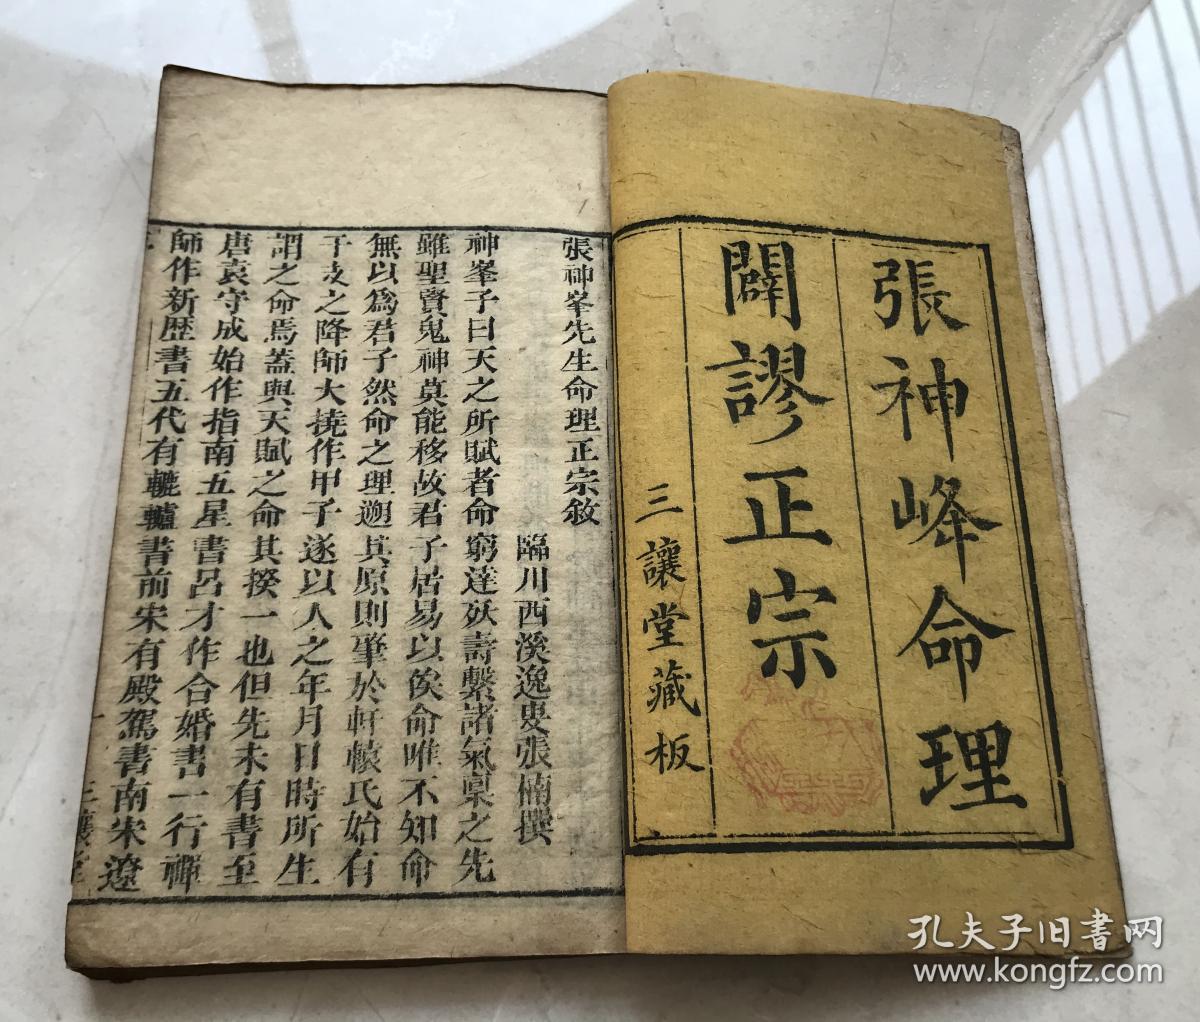 張神峰命理
闢謬正宗
三讓堂藏板
張神峯先生命理正宗敘
臨川西溪逸叟張楠撰
神峯子曰天之所賦者命窮達殀壽繫諸氣稟之先
雖聖賢鬼神莫能移故君子居易以俟命唯不知命
無以爲君子然命之理遡其原則肇於軒轅氏始有
干支之降師大撓作甲子遂以人之年月日時所生
謂之命焉蓋與天賦之命其揆一也但先未有書至
唐袁守成始作指南五星書呂才作合婚書一行禪
師作新歷書五代有轆轤書前宋有殿駕書南宋遼
三讓堂
孔夫子旧書网
www.kongfz.com